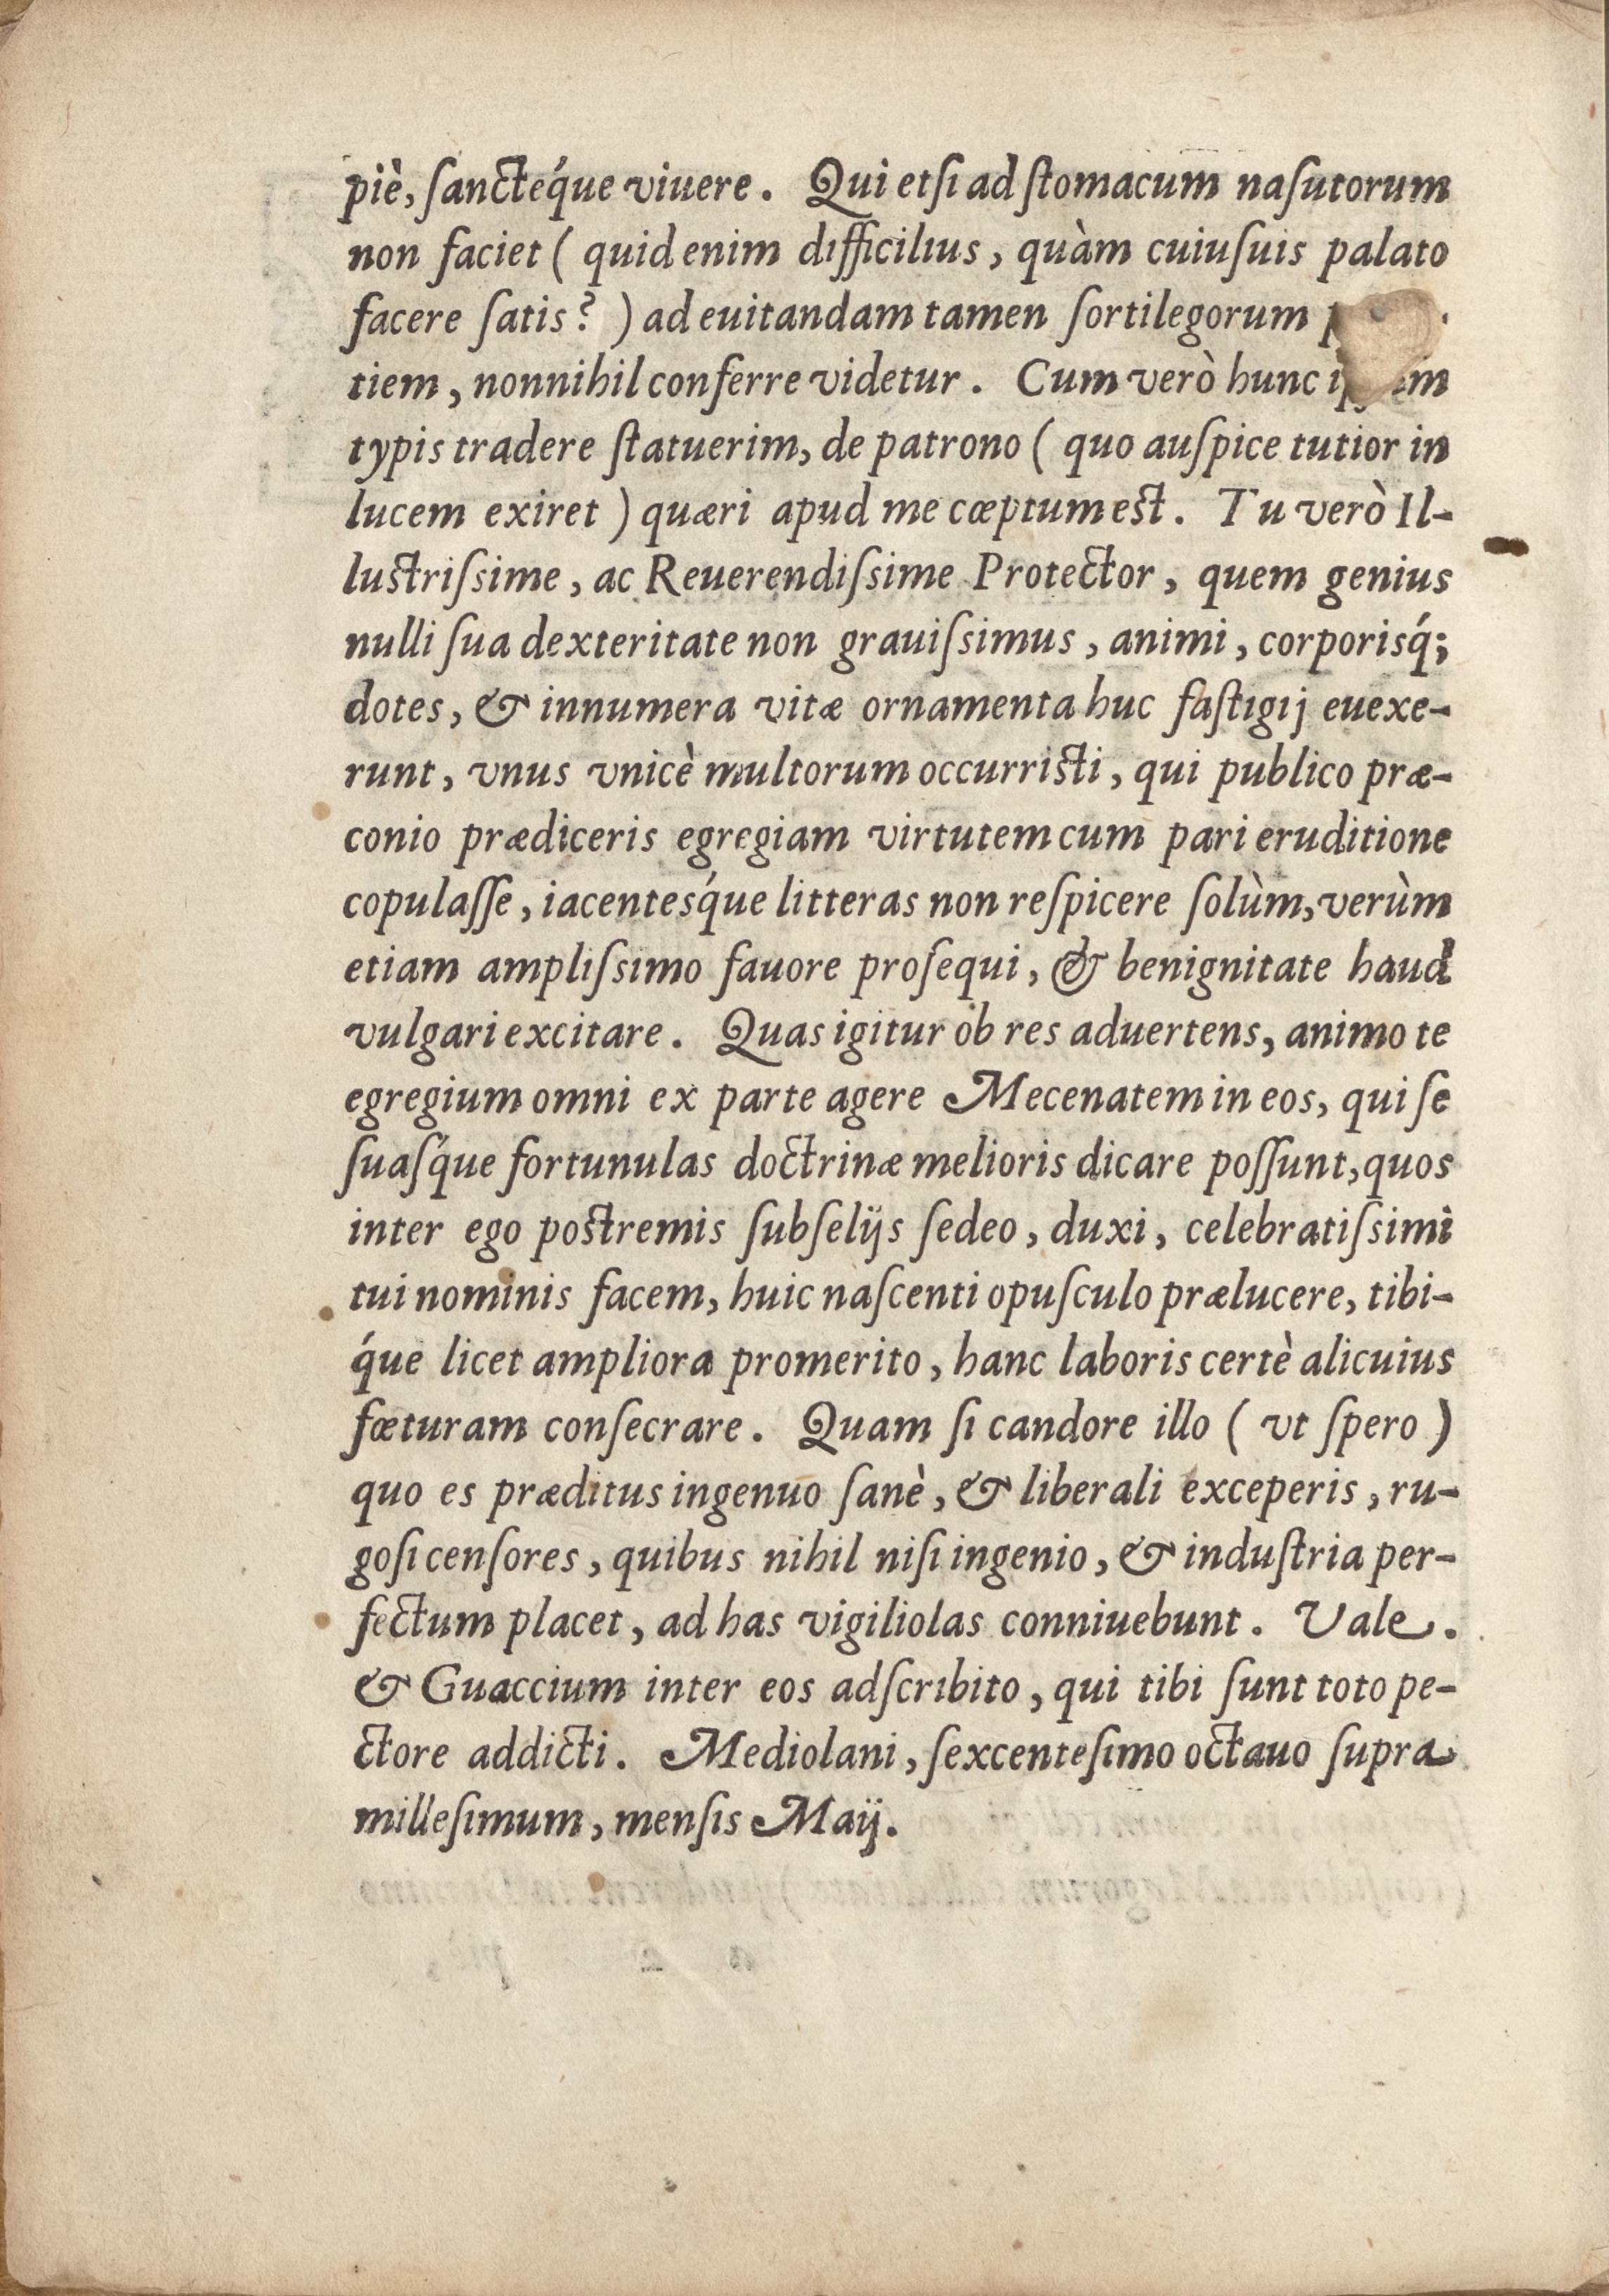 piè, ſanctéque viuere. Qui etſi ad ſtomacum naſutorum
non faciet ( quid enim difficilius, quàm cuiuſuis palato
facere ſatis? ) ad euitandam tamen ſortilegorum
tiem, nonnihil conferre videtur. Cum verò hunc
typis tradere ſtatuerim, de patrono ( quo auſpice tutior in
lucem exiret ) quæri apud me cœptum est. Tu verò Il-
lustriſsime, ac Reuerendiſsime Protector, quem genius
nulli ſua dexteritate non grauiſsimus, animi, corporisq́;
dotes, & innumera vitæ ornamenta huc faſtigij euexe-
runt, vnus vnicè multorum occurristi, qui publico præ-
conio prædiceris egregiam virtutem cum pari eruditione
copulaſſe, iacentesq́ue litteras non reſpicere ſolùm, verùm
etiam ampliſsimo fauore proſequi, & benignitate haud
vulgari excitare. Quas igitur ob res aduertens, animo te
egregium omni ex parte agere Mecenatem in eos, qui ſe
ſuaſq́ue fortunulas doctrinæ melioris dicare poſſunt, quos
inter ego postremis ſubſelijs ſedeo, duxi, celebratiſsimi
tui nominis facem, huic naſcenti opuſculo prælucere, tibi-
q́ue licet ampliora promerito, hanc laboris certè alicuius
fœturam conſecrare. Quam ſi candore illo ( vt ſpero )
quo es præditus ingenuo ſanè, & liberali exceperis, ru-
goſi cenſores, quibus nihil niſi ingenio, & induſtria per-
fectum placet, ad has vigiliolas conniuebunt. Vale.
& Guaccium inter eos adſcribito, qui tibi ſunt toto pe-
ctore addicti. Mediolani, ſexcenteſimo octauo ſupra
milleſimum, menſis Maij.